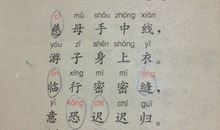 cí mǔ shǒu zhōng xiàn
慈母手中线，
yóu zǐ shēn shàng yī
游子身上衣。
lín xíng mì mì féng
临行密密缝，
yì kǒng chí chí guī
意恐迟迟归。